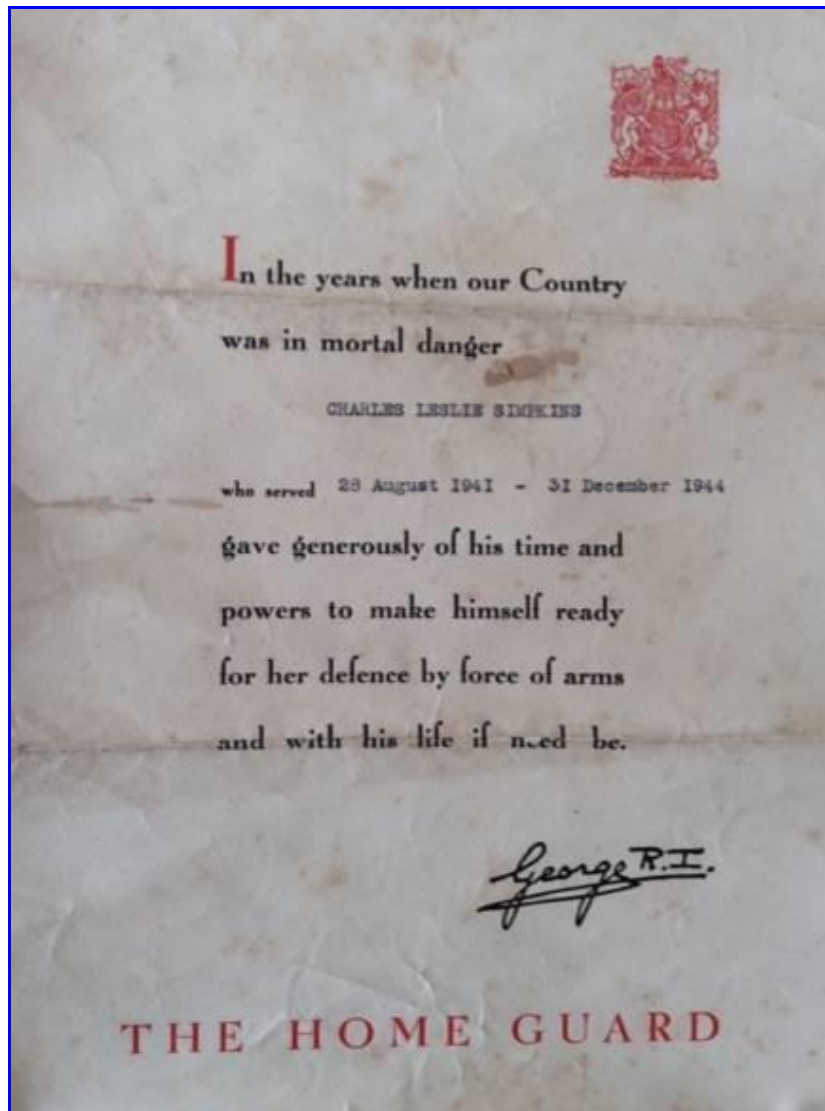 In the years when our Country
was in mortal danger
CHARLES LESLIE SIMPKINS
who served 28 August 1941 - 31 December 1944
gave generously of his time and
powers to make himself ready
for her defence by force of arms
and with his life if need be.
George R.I.
THE HOME GUARD